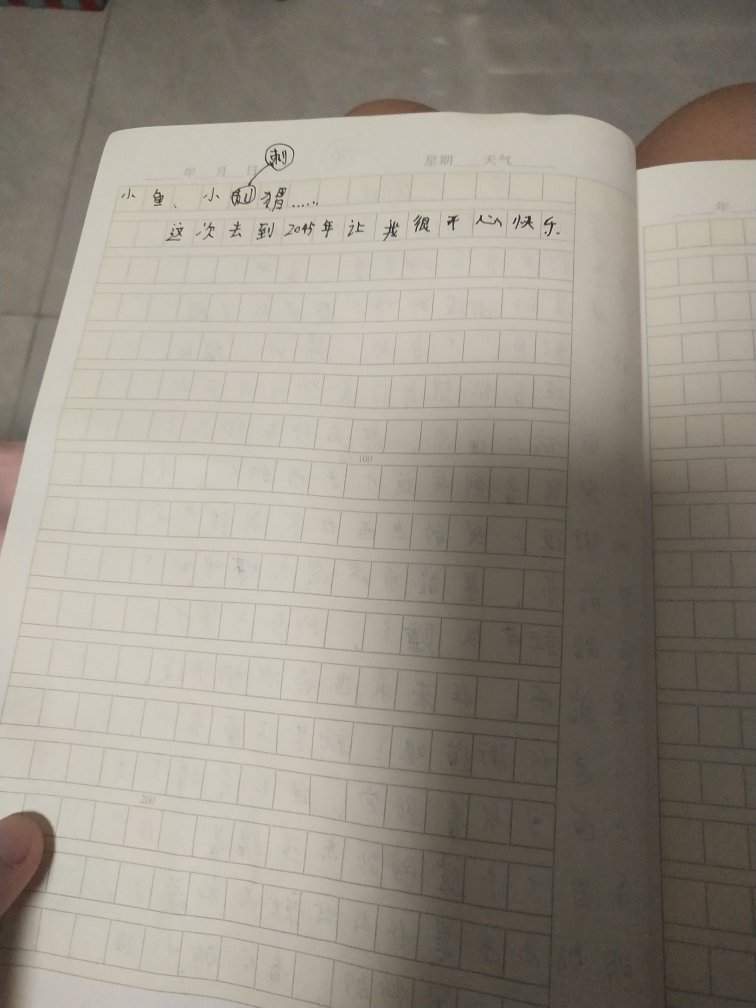 年 月 日 星期 天气
刺
小鱼、小猬……
这次去到2045年让我很开心快乐.
100
200
年